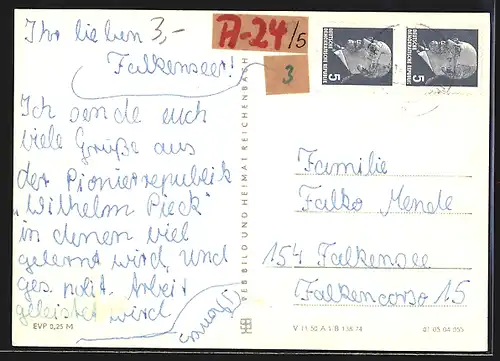 Ihr lieben 3,-
Falkenseer!
Ich sende euch
viele Grüße aus
der Pionierrepublik
"Wilhelm Pieck"
in denen viel
gelernt wird, und
ges. polit. Arbeit
geleistet wird
EVP 0,25 M
A-24/5
3
VEB BILD UND HEIMAT REICHENBACH
DEUTSCHE
DEMOKRATISCHE REPUBLIK
5
DEUTSCHE
DEMOKRATISCHE REPUBLIK
5
Familie
Falko Mende
154 Falkensee
Falkencorso 15
V 11 50 A 1 B 158/74
01 05 04 055